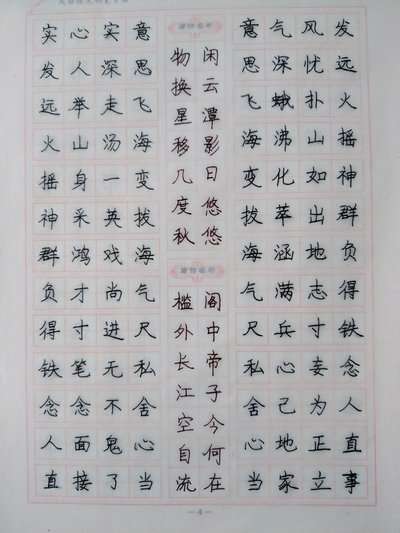 实心实意
发人深思
远举走飞
火山汤海
摇身一变
神采英拔
群鸿戏海
负才尚气
得寸进尺
铁笔无私
念念不舍
人面鬼心
直接了当
闲云潭影日悠悠
物换星移几度秋
阁中帝子今何在
槛外长江空自流
意气风发
思深忧远
飞蛾扑火
海沸山摇
变化如神
拔萃出群
海涵地负
气满志得
尺兵寸铁
私心妄念
舍己为人
心地正直
当家立事
—4—